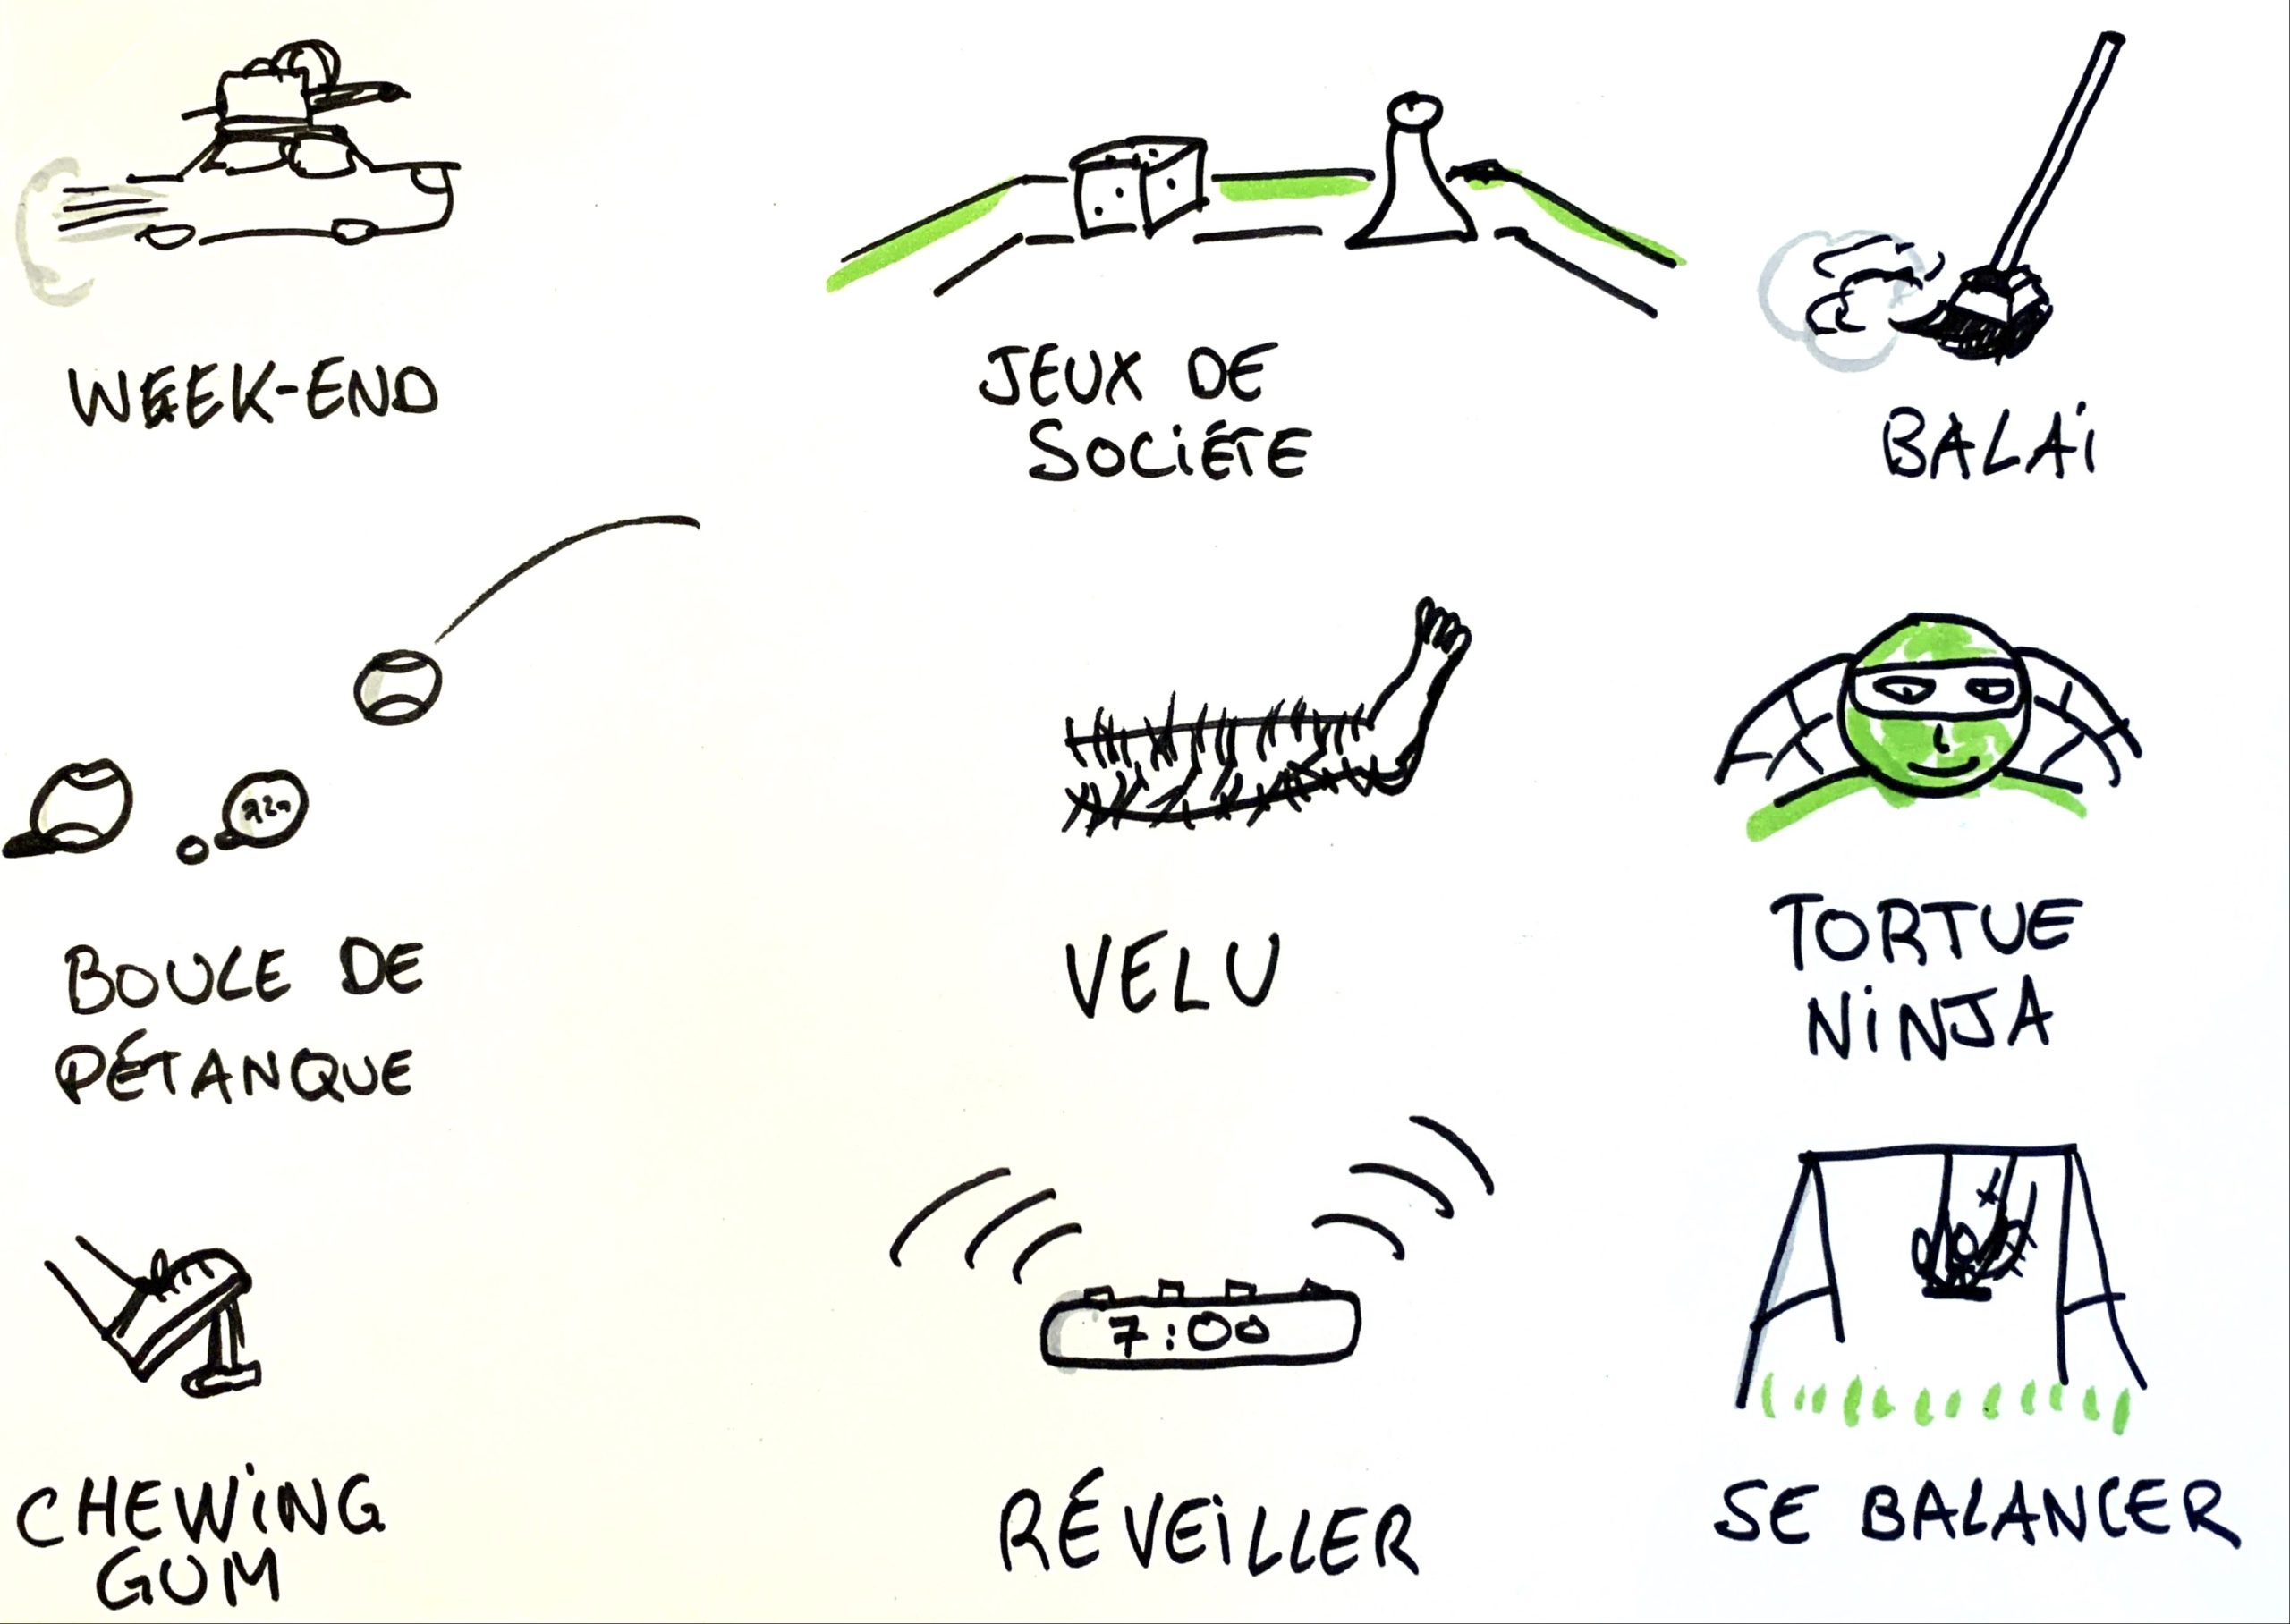 WEEK-END
JEUX DE
SOCIÉTE
BALAi
BOULE DE
PÉTANQUE
VELU
TORTUE
NiNJA
7:00
CHEWiNG
GUM
RÉVEiLLER
SE BALANCER